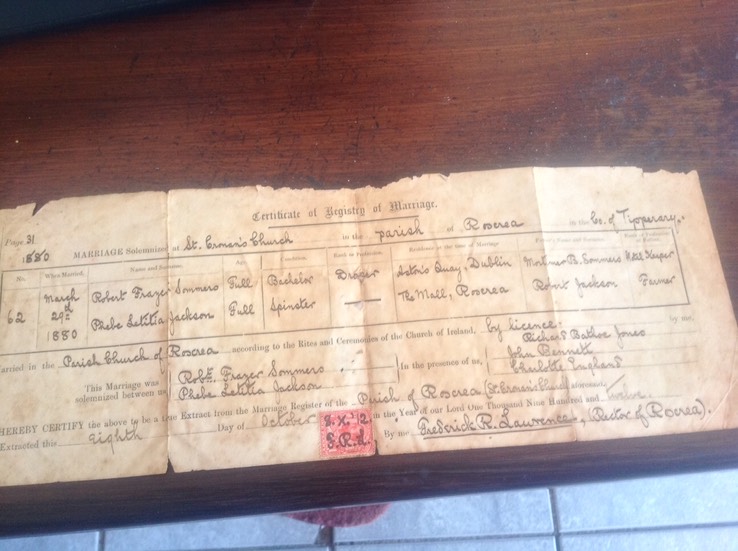 Certificate of Registry of Marriage.
Page 31
1880 MARRIAGE Solemnized at St. Cronan's Church in the parish of Roscrea in the Co. of Tipperary.
No. When Married. Name and Surname. Age. Condition. Rank or Profession. Residence at the time of Marriage Father's Name and Surname. Rank or Profession of Father.
62 March 29th 1880
Robert Frazer Sommers Full Bachelor Draper Quay, Dublin Mortimer B. Sommers Keeper
Phebe Letitia Jackson Full Spinster — The Mall, Roscrea Robert Jackson Farmer
Married in the Parish Church of Roscrea according to the Rites and Ceremonies of the Church of Ireland, by licence. by me,
Richard Bathoe Jones
This Marriage was solemnized between us,
Robt. Frazer Sommers
Phebe Letitia Jackson
In the presence of us,
John Bennett
Charlotte England
HEREBY CERTIFY the above to be a true Extract from the Marriage Register of the Parish of Roscrea (St. Cronan's Church) aforesaid.
Extracted this Eighth Day of October in the Year of our Lord One Thousand Nine Hundred and Twelve.
8. X. 12
F.R.L.
By me Frederick R. Lawrence, (Rector of Roscrea).